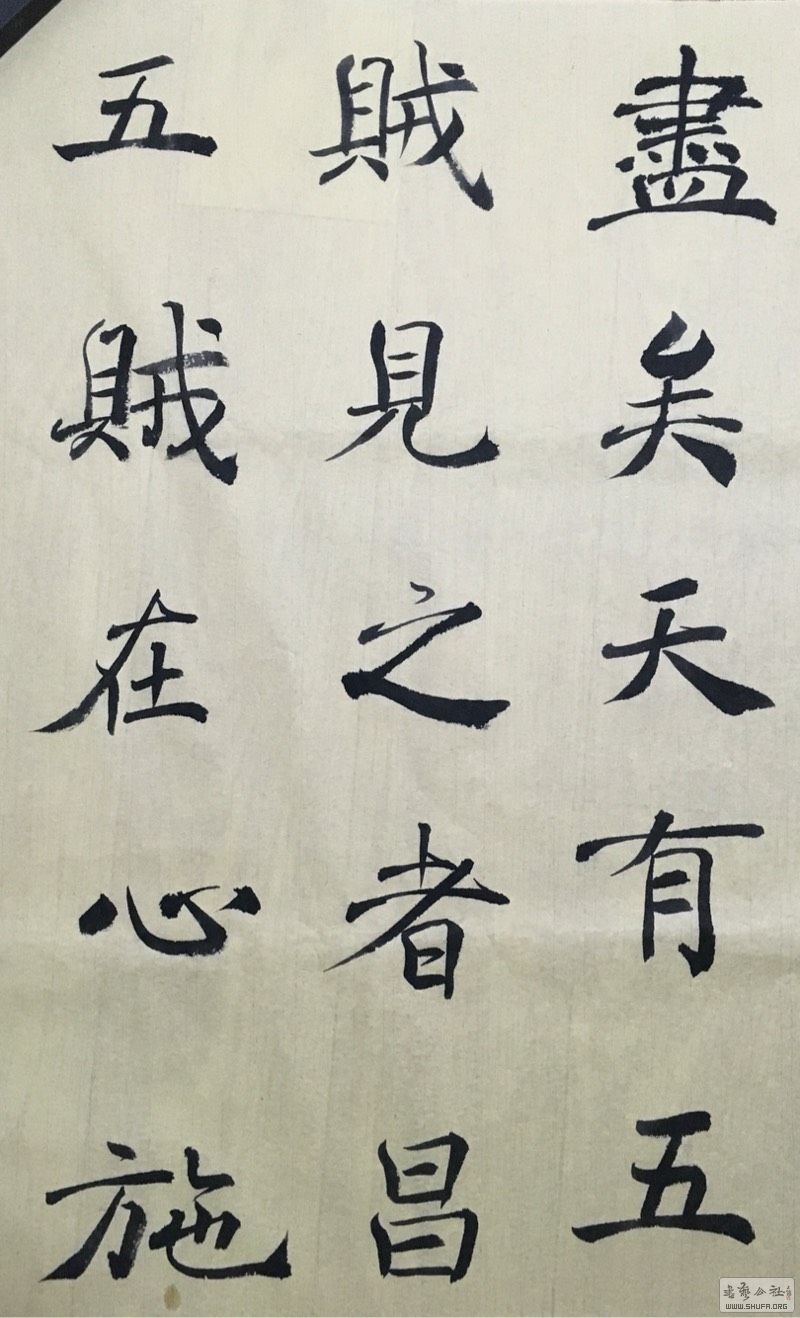 盡矣天有五
賊見之者昌
五賊在心施
書艺公社
WWW.SHUFA.ORG